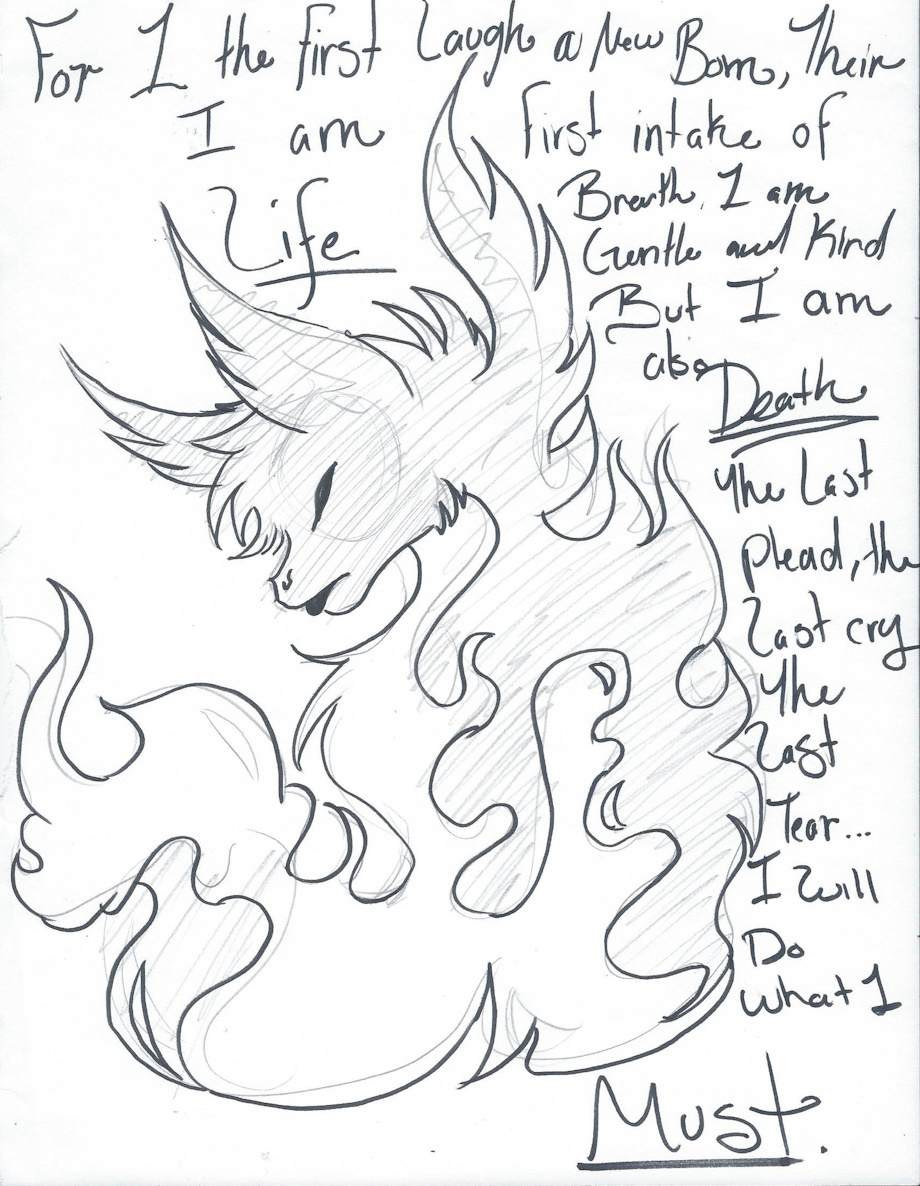 For I the first Laugh a New Born, Their
I am first intake of
Life Breath. I am
Gentle and Kind
But I am
also
Death
The Last
plead, the
Last cry
The
Last
Tear...
I Will
Do
what I
Must.